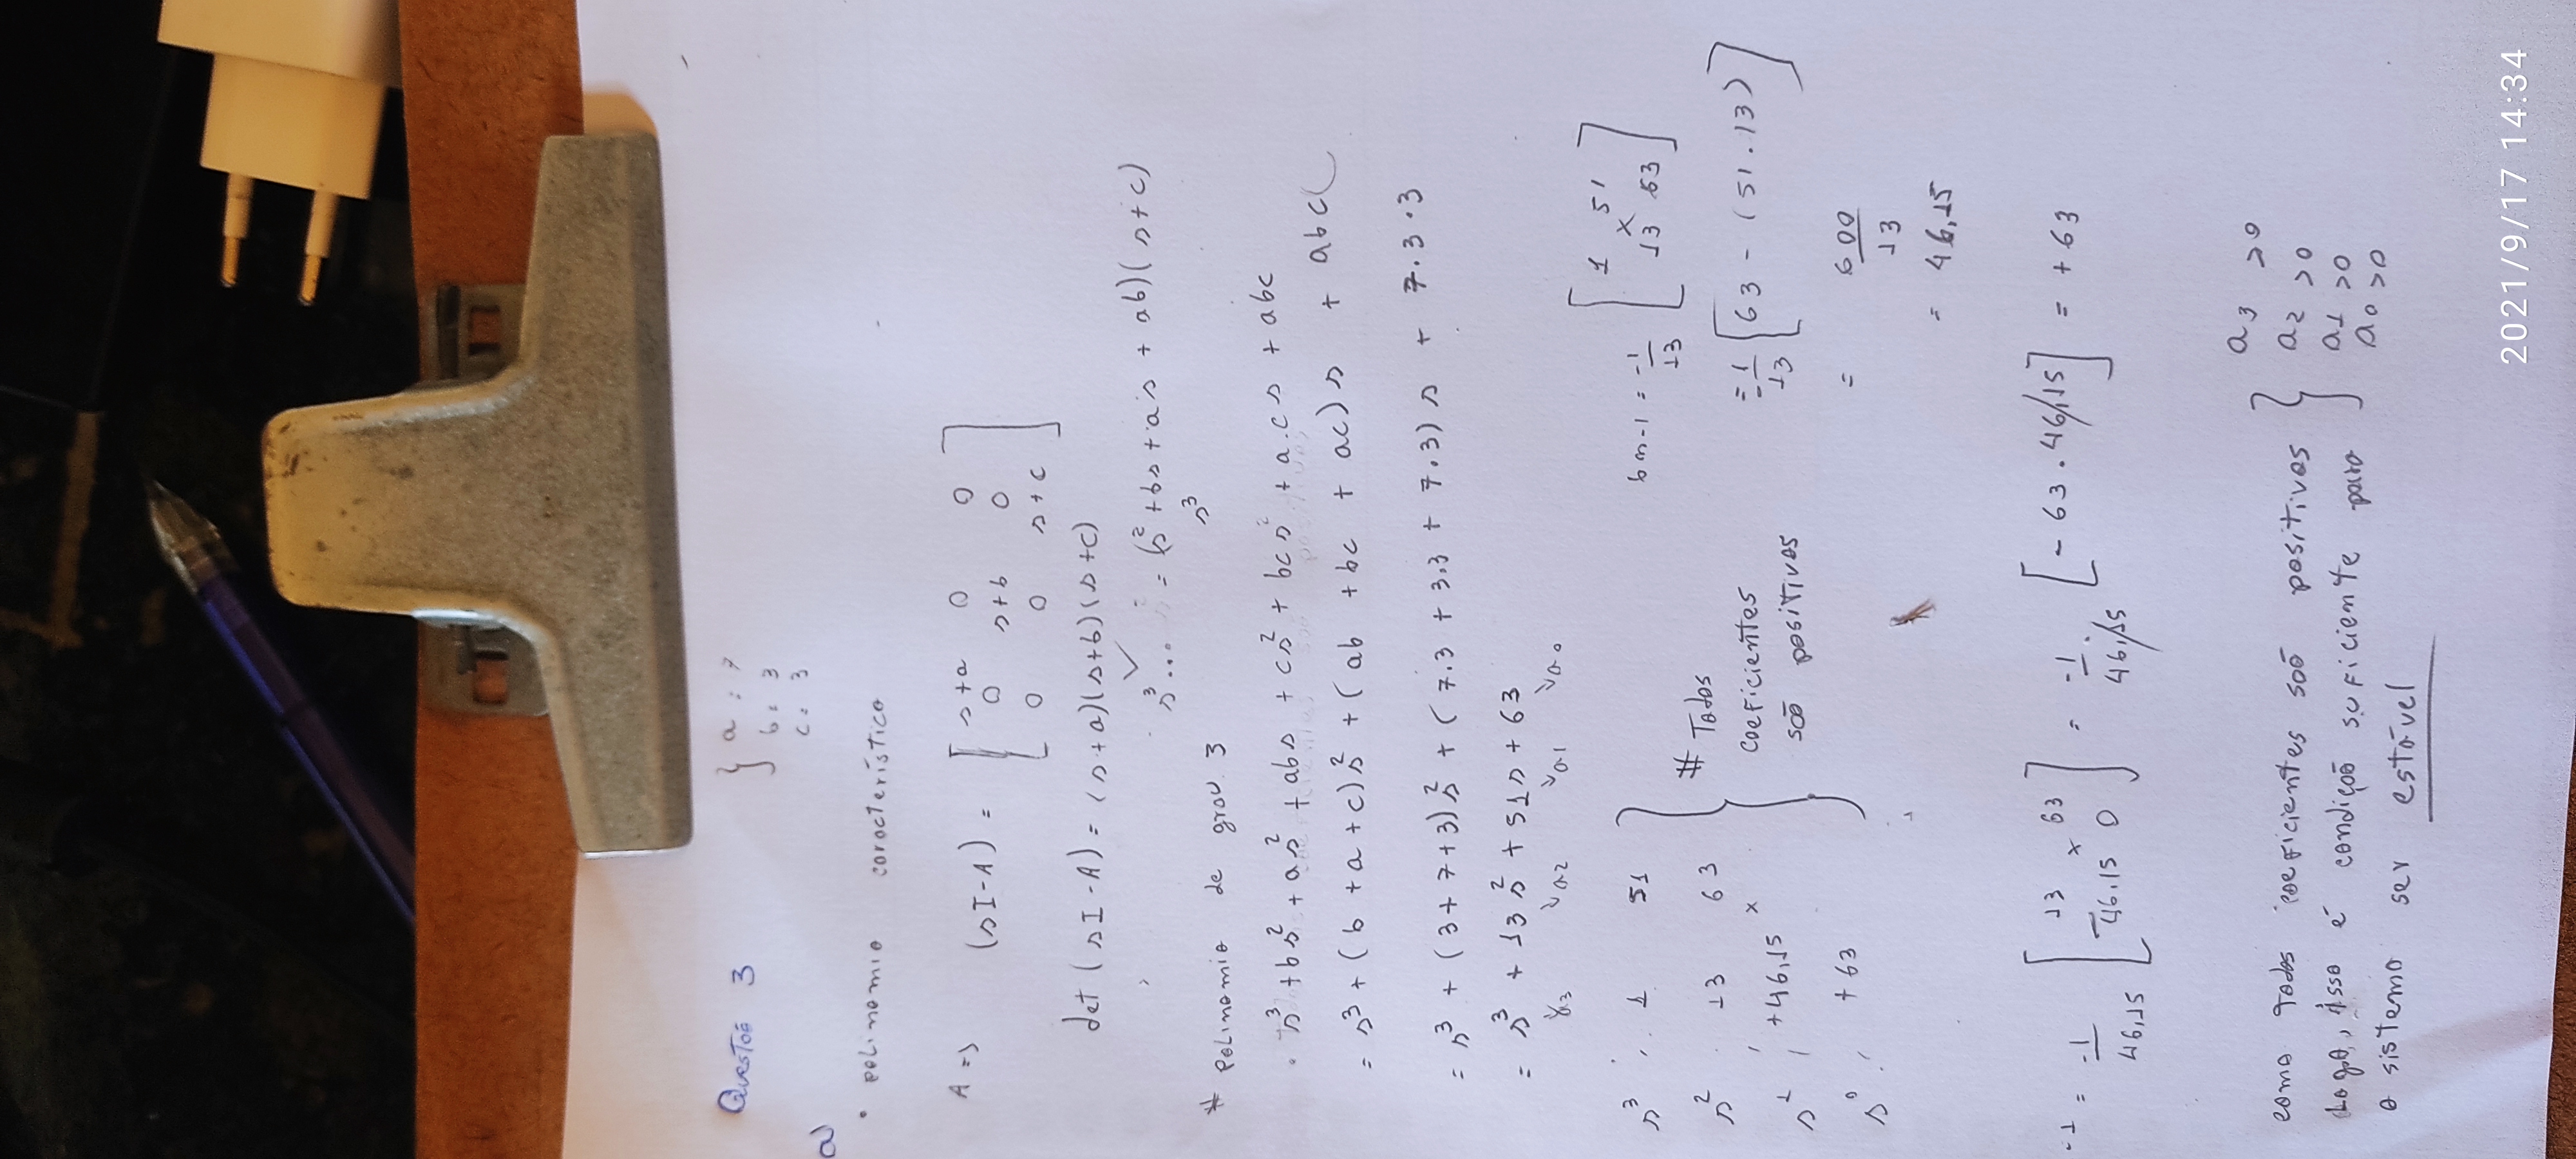 Questoẽ 3
} a : 7
b : 3
c : 3
a)
• polinomio corocterístico
A => (sI-A) = [ s+a 0 0
0 s+b 0
0 0 s+c ]
det (sI-A) = (s+a)(s+b)(s+c)
s³... = (s²+bs+as + ab)(s+c)
s³
* Polinomio de grou 3
. s³ + bs² + as² + abs + cs² + bcs² + a.cs + abc
= s³ + (b + a + c)s² + (ab + bc + ac)s + abc
= s³ + (3+7+3)s² + (7.3 + 3.3 + 7.3)s + 7.3.3
= s³ + 13s² + 51s + 63
↘a3 ↘a2 ↘a1 ↘a0
s³ : 1 51
s² : 13 63
x
s¹ : +46,15
s⁰ : +63
} # Todos
coeficientes
soō positivos
bn-1 = -1/13 [ 1 51
x
13 63 ]
= -1/13 [63 - (51.13)]
= 600/13
= 46,15
-1 = -1/46,15 [ 13 x 63
-46.15 0 ] = -1/46,15 [-63.46,15] = +63
como todos coeficientes soō positivos
Logo, isso é condiçoō suficiente paro
o sistemo ser estóvel
} a3 >0
a2 >0
a1 >0
a0 >0
2021/9/17 14:34